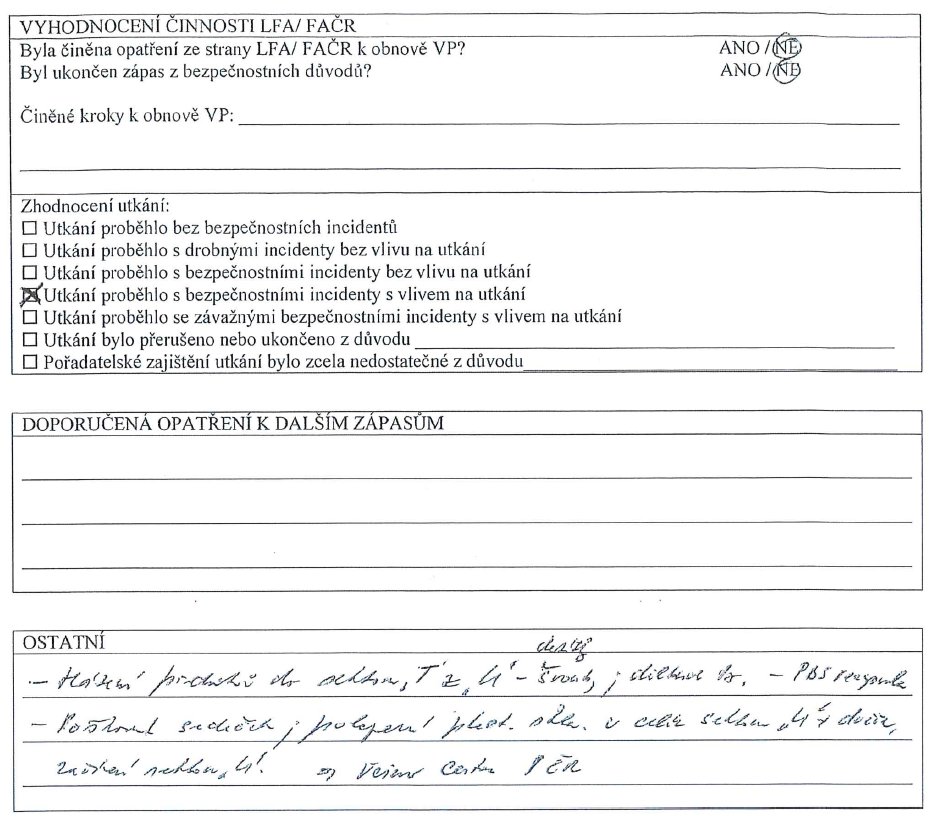 VYHODNOCENÍ ČINNOSTI LFA/ FAČR
Byla činěna opatření ze strany LFA/ FAČR k obnově VP? ANO / NE
Byl ukončen zápas z bezpečnostních důvodů? ANO / NE
Činěné kroky k obnově VP:
Zhodnocení utkání:
☐ Utkání proběhlo bez bezpečnostních incidentů
☐ Utkání proběhlo s drobnými incidenty bez vlivu na utkání
☐ Utkání proběhlo s bezpečnostními incidenty bez vlivu na utkání
☒ Utkání proběhlo s bezpečnostními incidenty s vlivem na utkání
☐ Utkání proběhlo se závažnými bezpečnostními incidenty s vlivem na utkání
☐ Utkání bylo přerušeno nebo ukončeno z důvodu
☐ Pořadatelské zajištění utkání bylo zcela nedostatečné z důvodu
DOPORUČENÁ OPATŘENÍ K DALŠÍM ZÁPASŮM
OSTATNÍ
- Házení předmětů do sektoru - šrouby
- sedaček ; polepení v celém sektoru
sektoru PČR